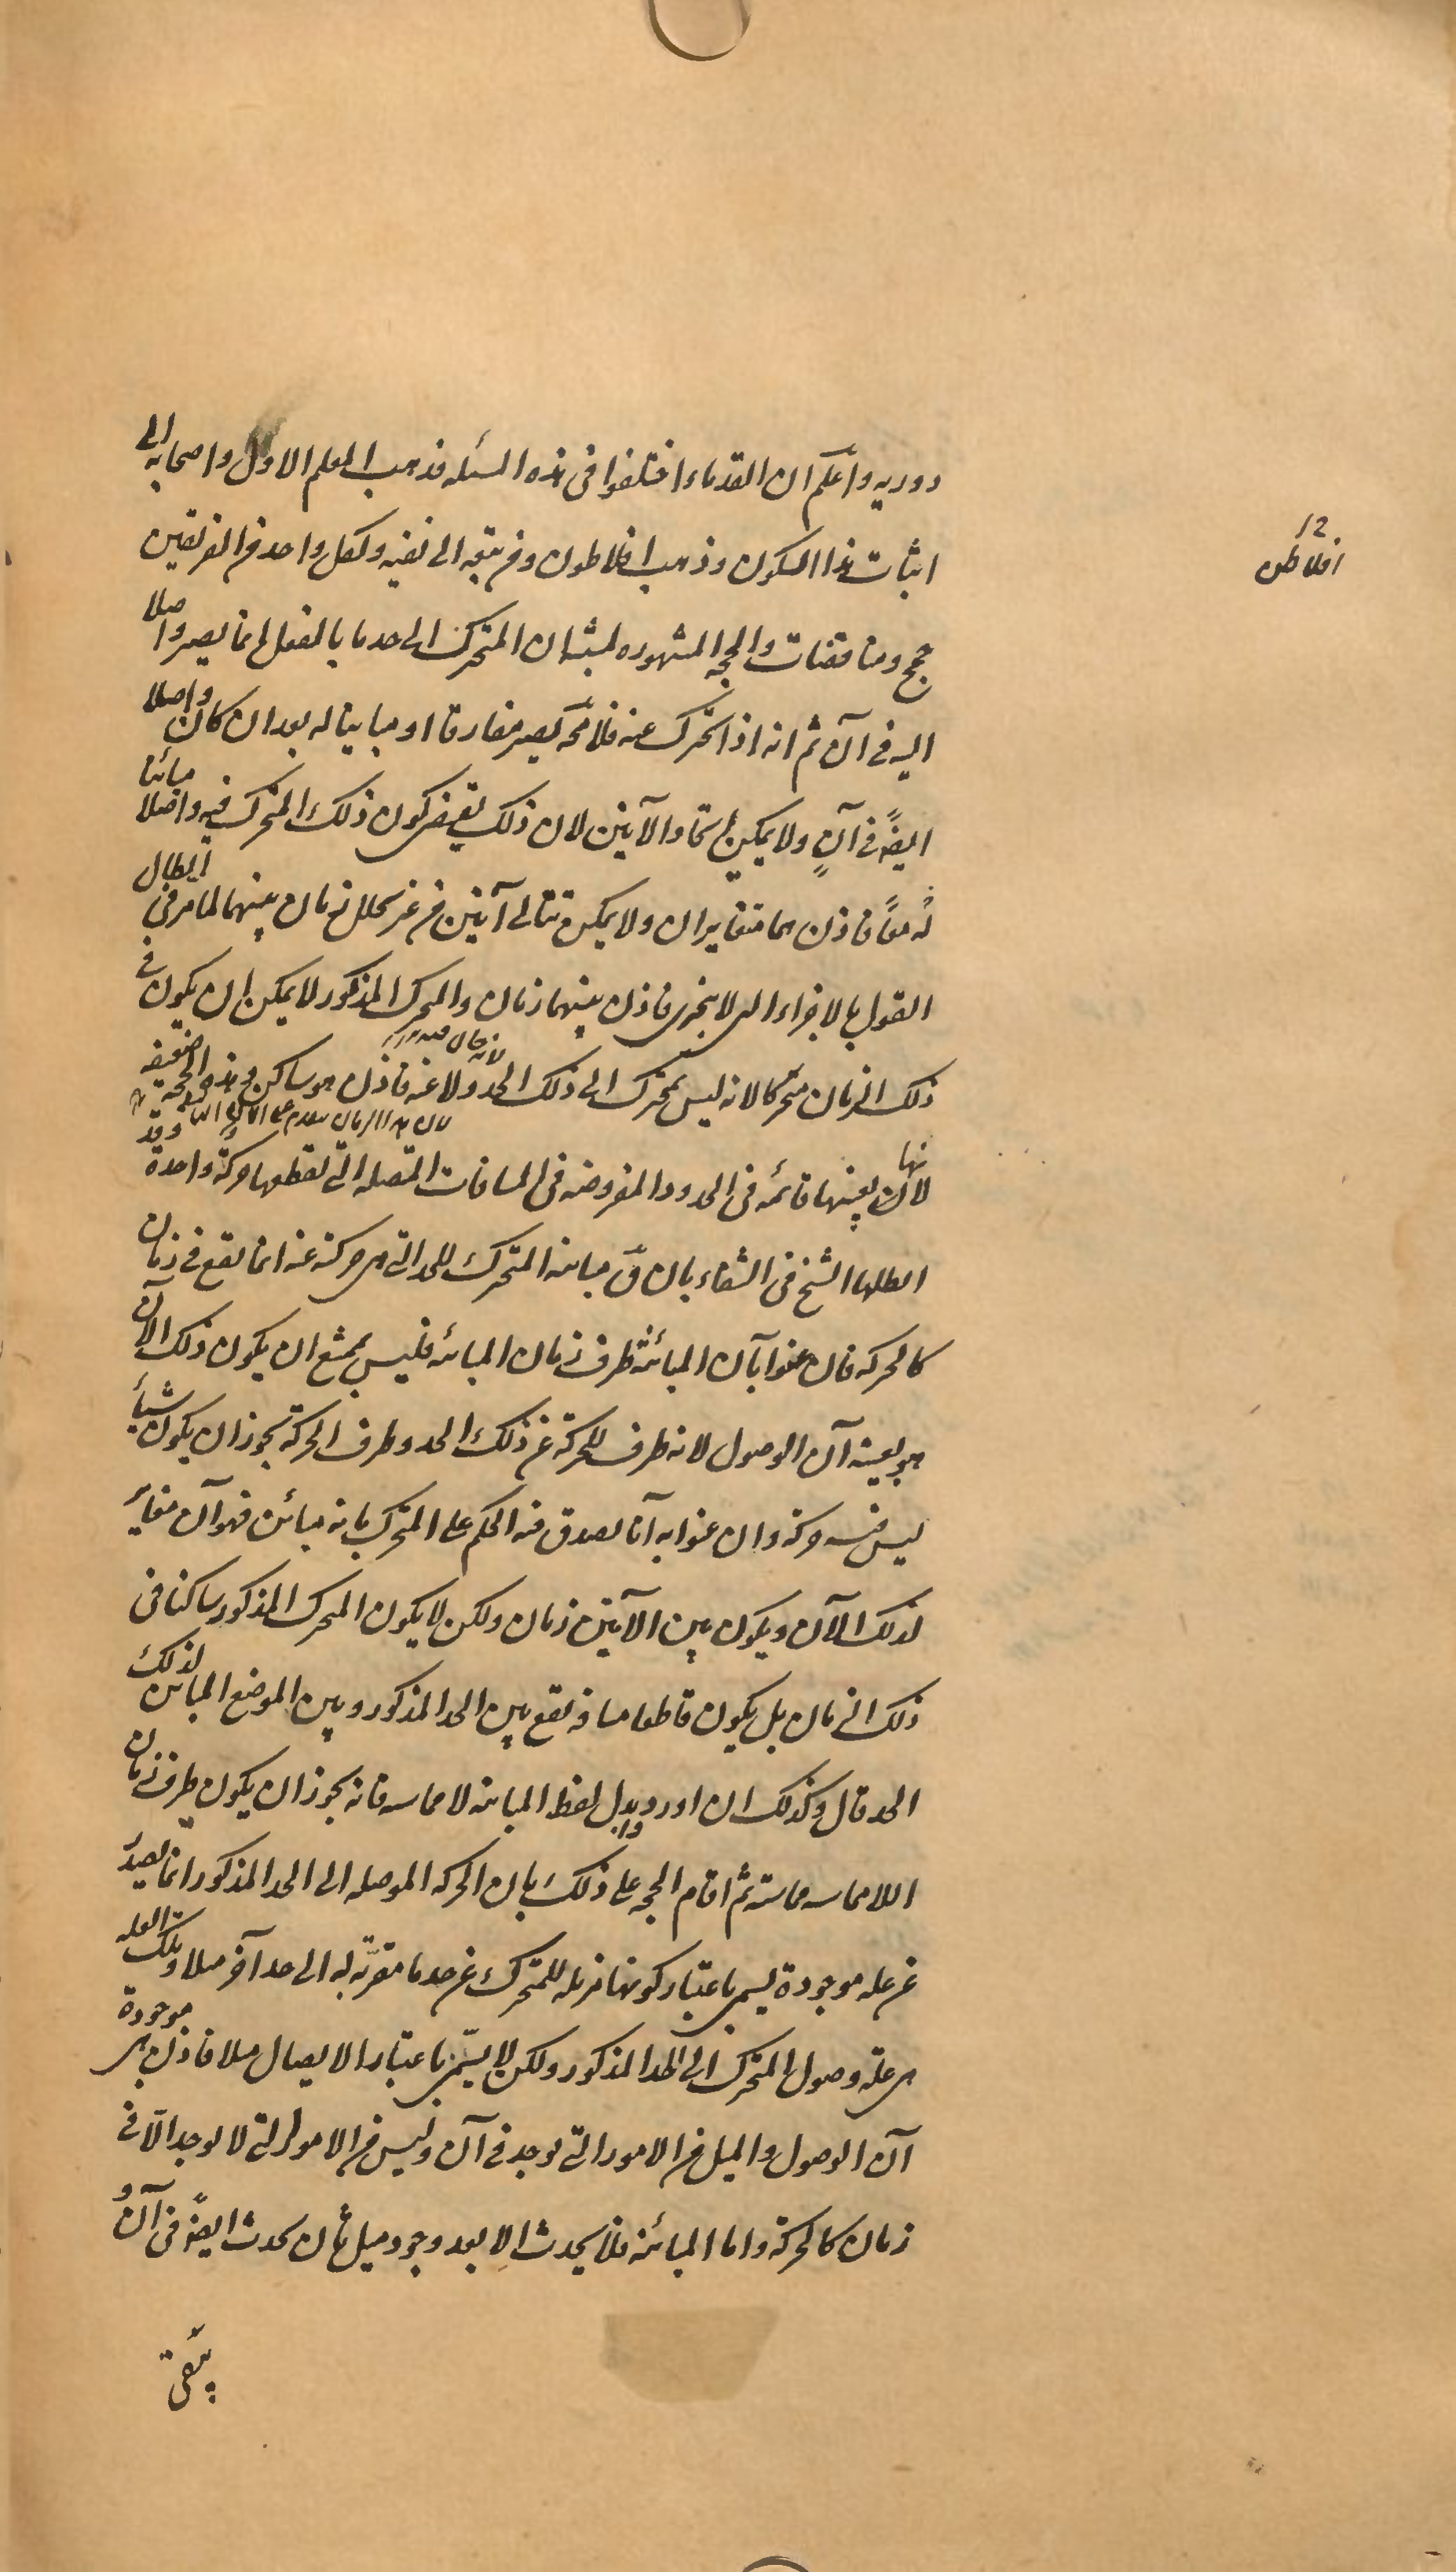 دوريه واعلم ان القدماء اختلفوا فى هذه المسئله فذهب المعلم الاول واصحابه الى
اثبات هذا السكون وذهب افلاطون ومن تبعه الى نفيه ولكل واحد من الفريقين
12
افلاطن
حجج ومناقضات والحجه المشهوره لمثبتيه ان المتحرك الى حد ما بالفعل انما يصير واصلا
اليه فى آن ثم انه اذا تحرك عنه فلا محه يصير مفارقا او مباينا له بعد ان كان واصلا
ايضً فى آنٍ ولا يمكن اتحاد الآنين لان ذلك يقتضى كون ذلك المتحرك فيه واصلا مبائنا
لهُ معًا فاذن هما متغايران ولا يمكن تتالى آنين من غير تخلل زمان بينهما لما مر فى ابطال
القول بالاجزاء التى لا يتجزى فاذن بينهما زمان والمتحرك المذكور لا يمكن ان يكون فى
ذلك الزمان متحركا لانه ليس بمتحرك الى ذلك الحد ولا عنه فاذن هو ساكن وهذه الحجه ضعيفه
لانها بعينها قائمه فى الحدود المفروضه فى المسافات المتصله التى تقطعها حركة واحدة وقد
ابطلها الشيخ فى الشفاء بان قَ مباينه المتحرك للحد التى هى حركته عنه انما تقع فى زمان
كالحركه فان عنوا بآن المبائنة طرف زمان المبائنه فليس بممتنع ان يكون ذلك الآن
هو بعينه آن الوصول لانه طرف للحركة عن ذلك الحد وطرف الحركة يجوز ان يكون شيأ
ليس فيه حركة وان عنوا به آنا يصدق فيه الحكم على المتحرك بانه مبائن فهو آن مغاير
لذلك الآن ويكون بين الآنين زمان ولكن لا يكون المتحرك المذكور ساكنا فى
ذلك الزمان بل يكون قاطعا مسافه تقع بين الحد المذكور وبين الموضع المبائن لذلك
الحد قال وكذلك ان اوردوا بدل لفظ المباينه لا مماسه فانه يجوز ان يكون طرف زمان
اللامماسه مماسة ثم اقام الحجه على ذلك بان الحركه الموصله الى الحد المذكور انما تصدر
عن عله موجودة يسمى باعتبار كونها مزيله للمتحرك عن حد ما مقربّه له الى حد آخر ميلا وتلك العله
هى علة وصول المتحرك الى الحد المذكور ولكن لا يسمّى باعتبار الايصال ميلا فاذن هى موجودة
آن الوصول والميل من الامور التى توجد فى آن وليس من الامور التى لا توجد الّا فى
زمان كالحركة واما المبائنه فلا يحدث الا بعد وجود ميل ثان يحدث ايضً فى آن و
يبقى